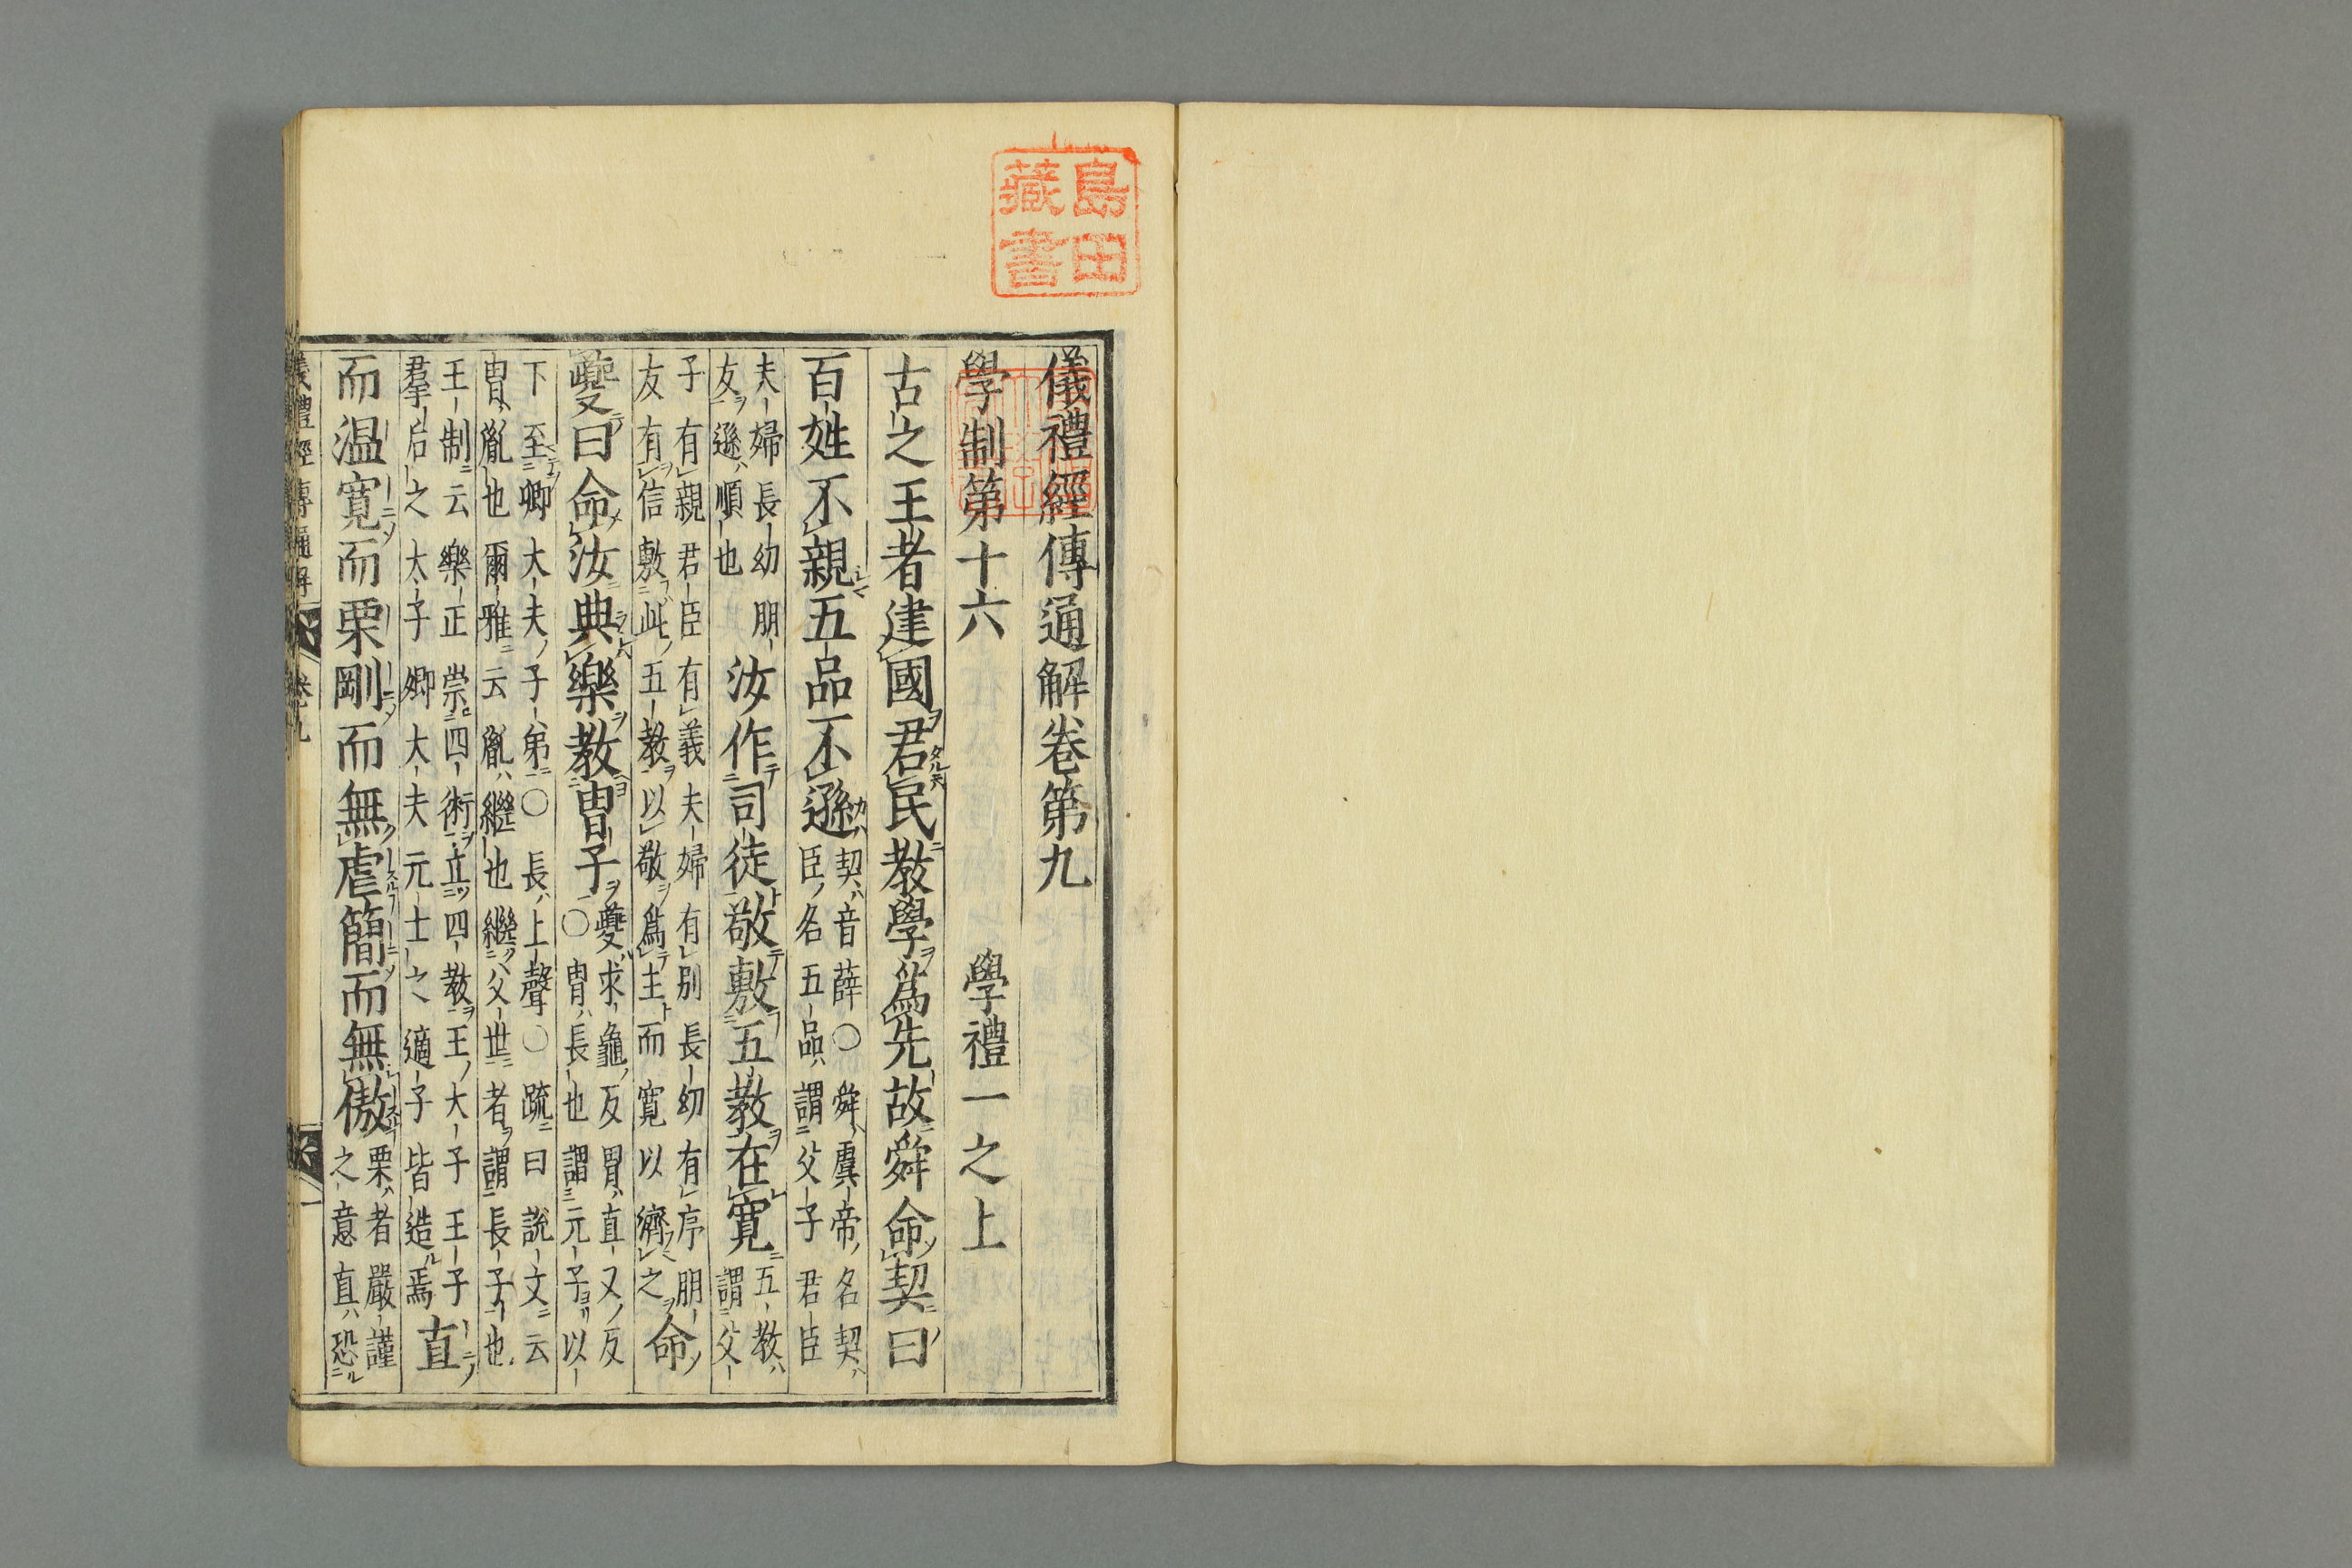 島田
藏書
儀禮經傳通解卷第九
學制第十六 學禮一之上
古之王者建國君民教學爲先故舜命契曰
百姓不親五品不遜契音薛○舜虞帝名契
臣名五品謂父子君臣
夫婦長幼朋
友遜順也
汝作司徒敬敷五教在寬五教
謂父
子有親君臣有義夫婦有別長幼有序朋
友有信敷此五教以敬爲主而寬以濟之
命
夔曰命汝典樂教冑子夔求龜反冑直又反
○冑長也謂元子以
下至卿大夫子弟○長上聲○疏曰說文云
冑胤也爾雅云胤繼也繼父世者謂長子也
王制云樂正崇四術立四教王大子王子
羣后之大子卿大夫元士之適子皆造焉
直
而温寬而栗剛而無虐簡而無傲栗者嚴謹
之意直恐
儀禮經傳通解 卷九 一